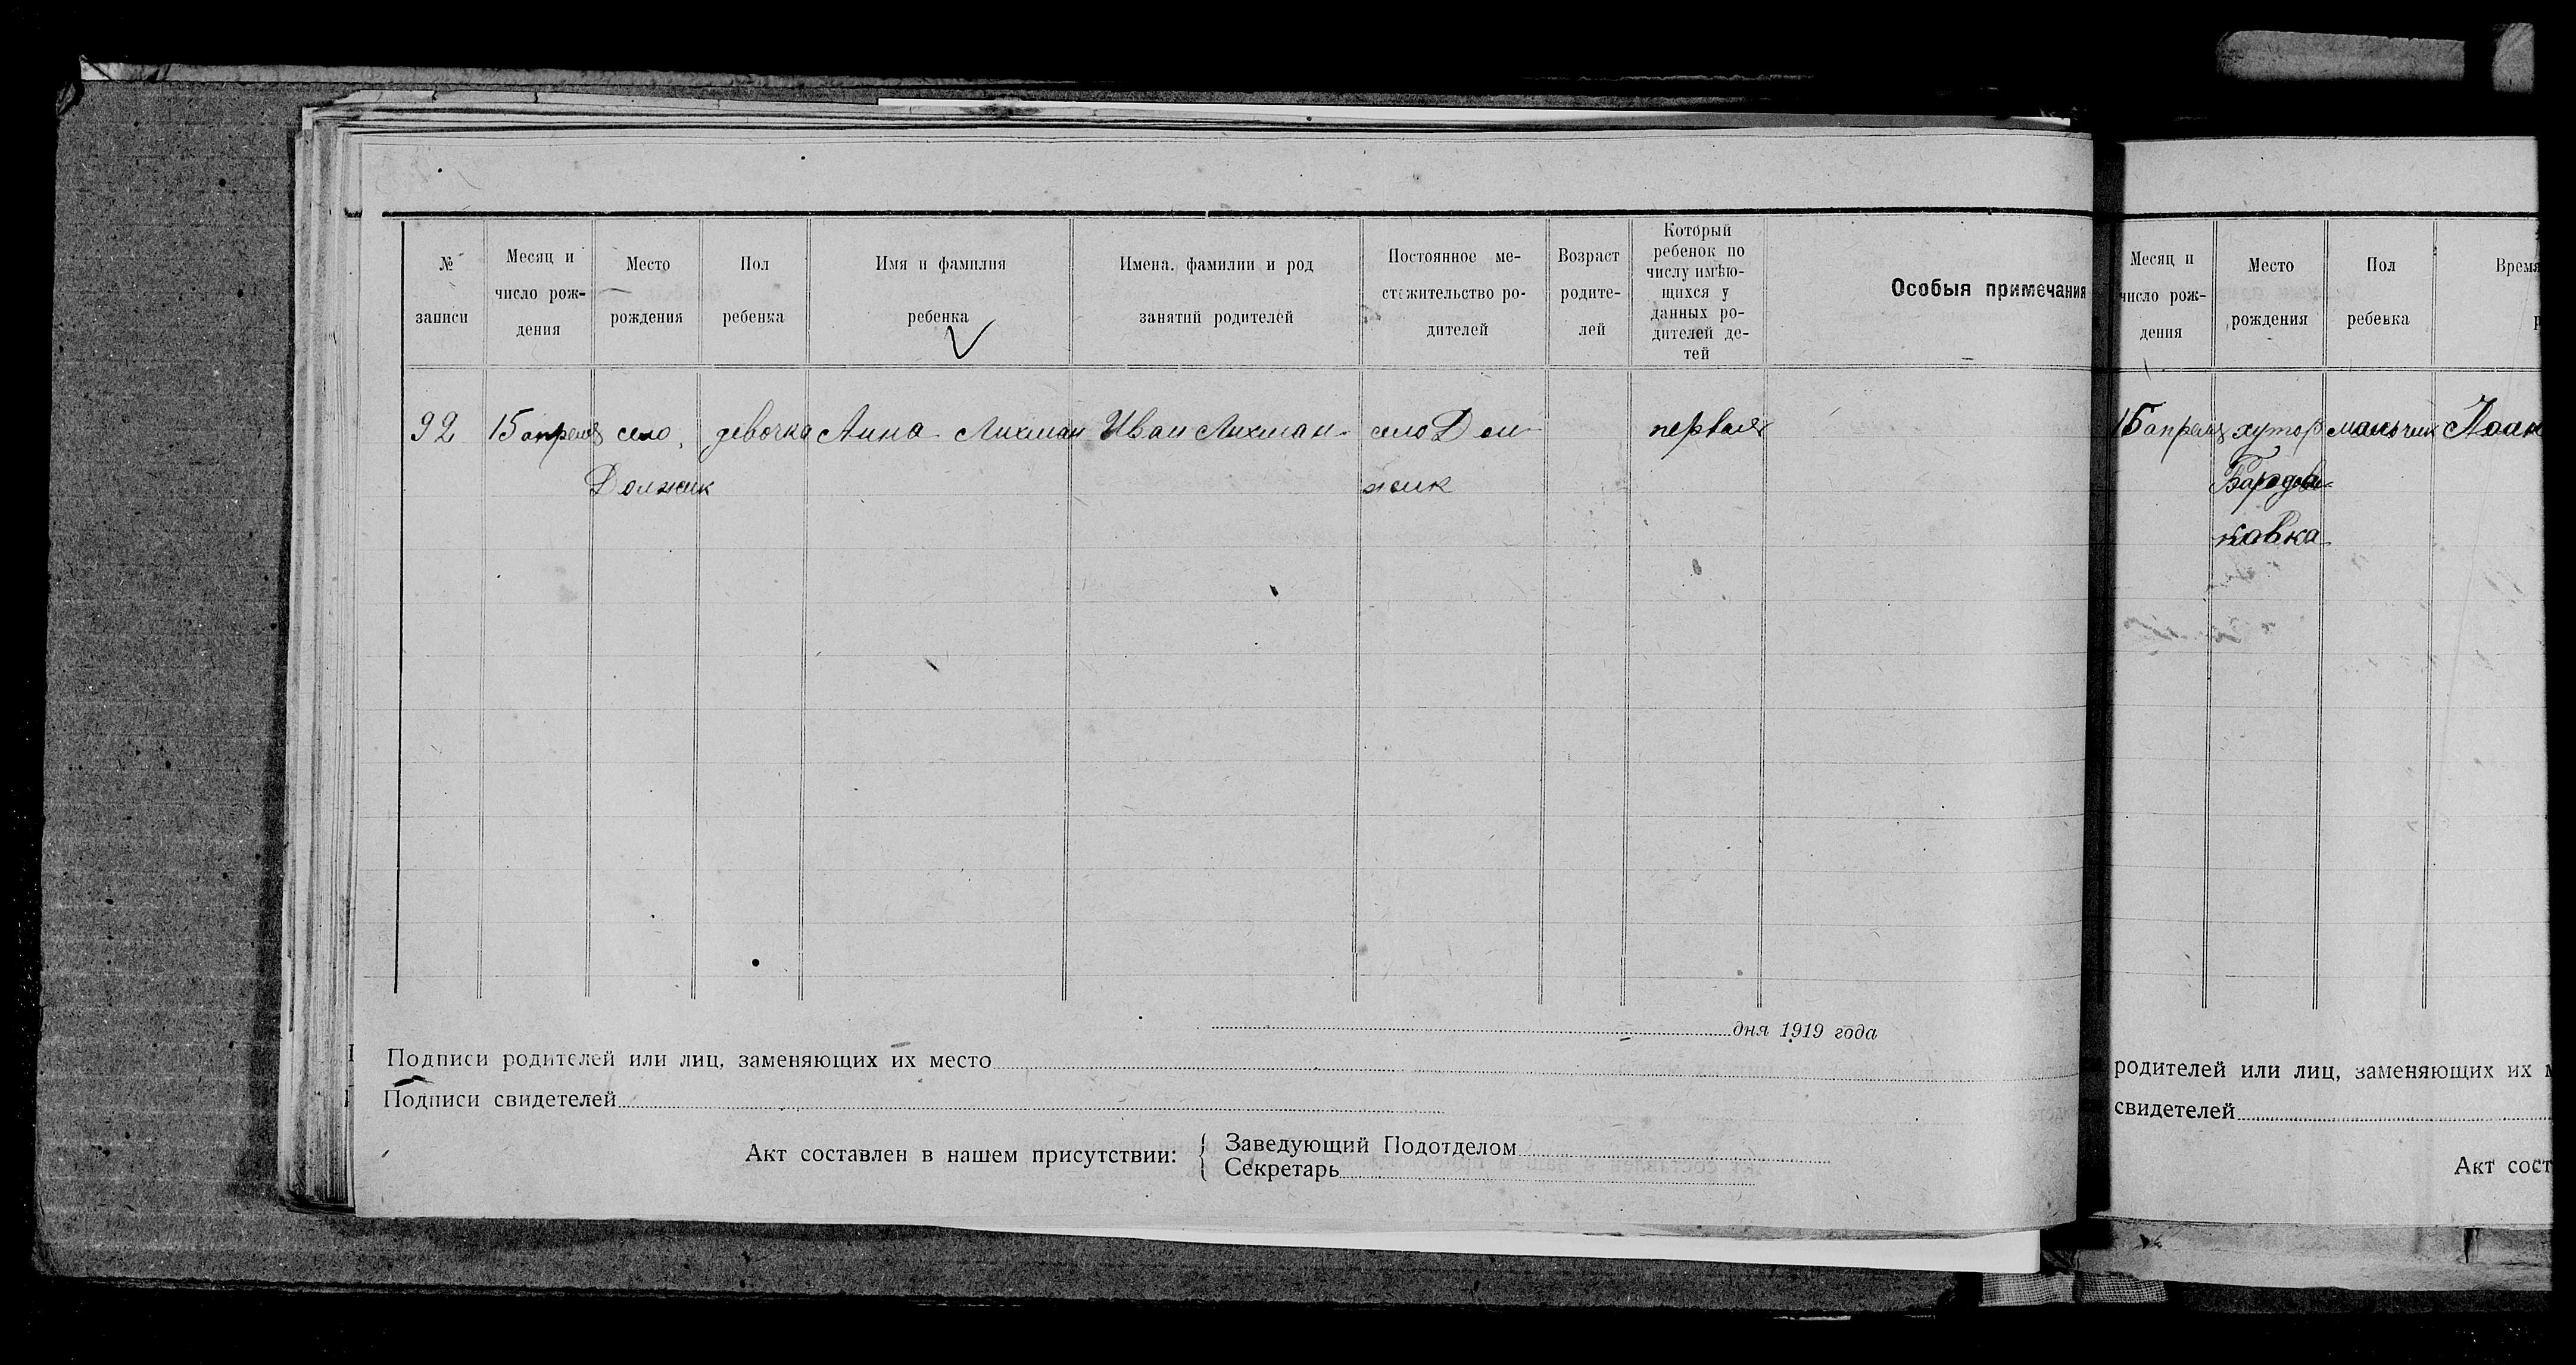 № записи
Месяц и число рождения
Место рождения
Пол ребенка
Имя и фамилия ребенка
Имена, фамилии и род занятий родителей
Постоянное местожительство родителей
Возраст родителей
Который ребенок по числу имѣющихся у данных родителей детей
Особыя примечания
92 15 апреля село девочка Анна Лихман Иван Лихман село Дол- первая
Должик жик
дня 1919 года
Подписи родителей или лиц, заменяющих их место
Подписи свидетелей
Акт составлен в нашем присутствии: { Заведующий Подотделом
Секретарь
Месяц и число рождения
Место рождения
Пол ребенка
Время
15 апреля хутор мальчик
кавка
родителей или лиц, заменяющих их м
свидетелей
Акт сост